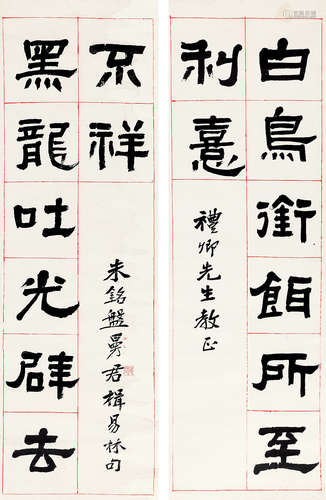 白鳥銜餌所至
利憙
禮卿先生教正
黑龍吐光辟去
不祥
朱銘盤曼君揖易林句